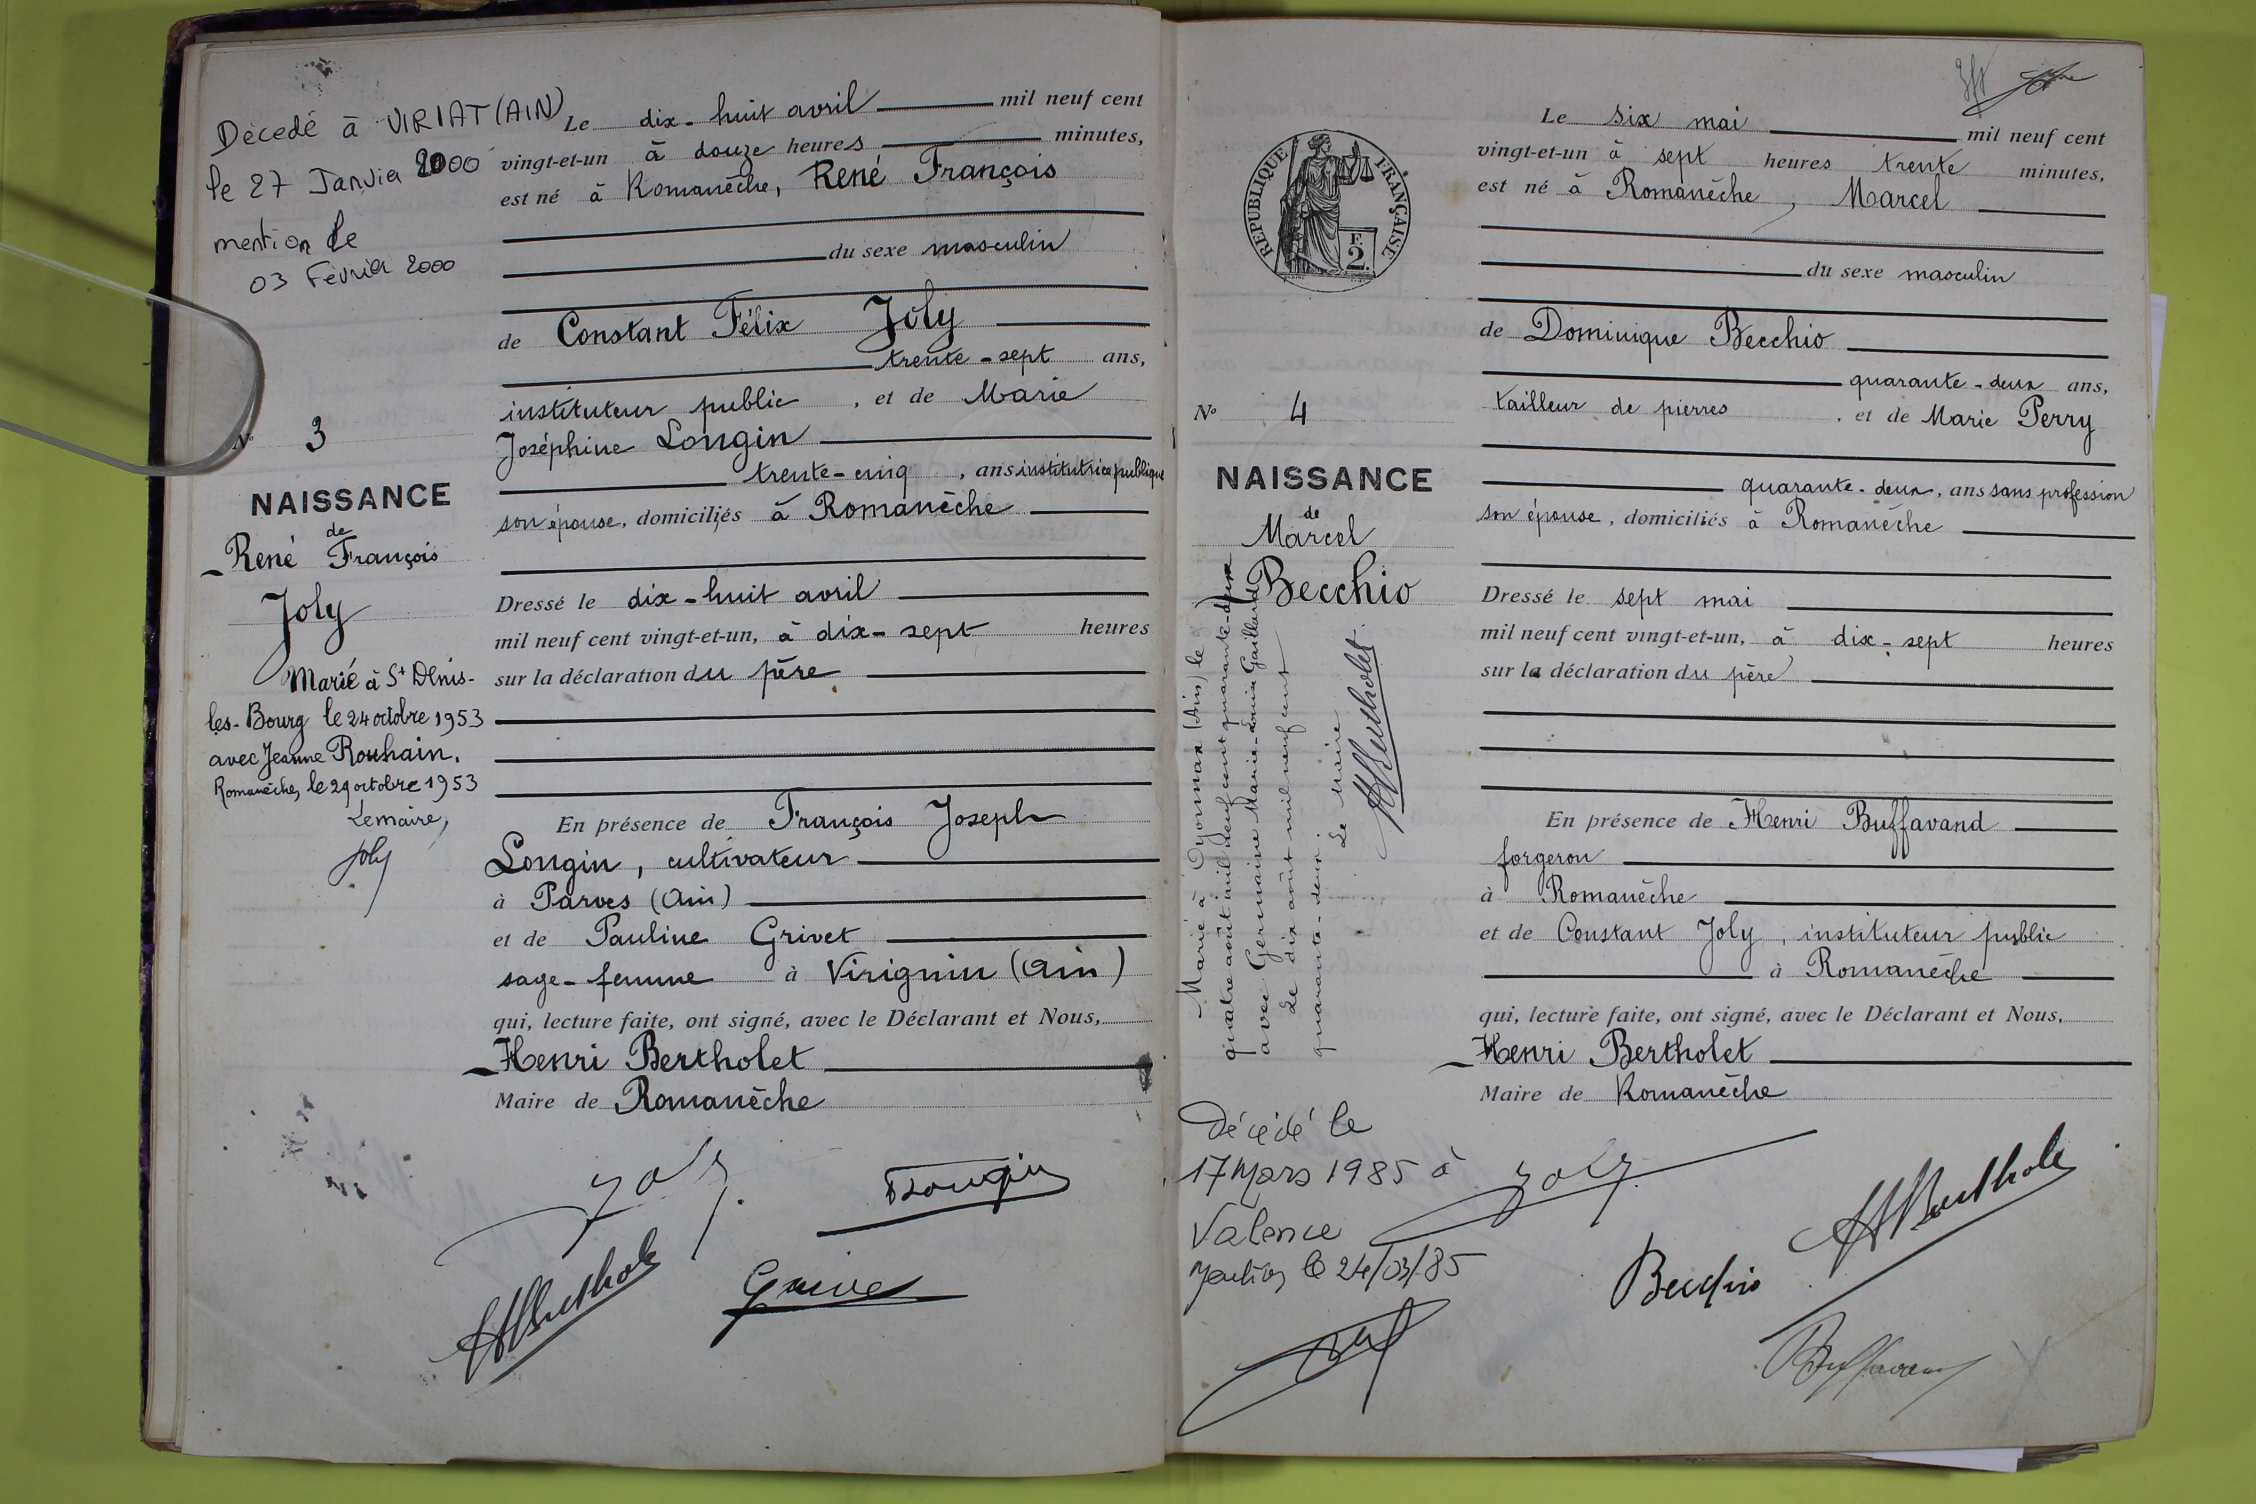 Décedé à VIRIAT (AIN)
le 27 Janvier 2000
mention le
03 Février 2000
N° 3
NAISSANCE
de
René François
Joly
Marié à St Denis-
les-Bourg le 24 octobre 1953
avec Jeanne Rouhain.
Romanèche, le 29 octobre 1953
Le maire,
Joly
Le dix-huit avril mil neuf cent
vingt-et-un à douze heures minutes,
est né à Romanèche, René François
du sexe masculin
de Constant Félix Joly
trente-sept ans,
instituteur public, et de Marie
Joséphine Longin
trente-cinq, ans institutrice publique
son épouse, domiciliés à Romanèche
Dressé le dix-huit avril
mil neuf cent vingt-et-un, à dix-sept heures
sur la déclaration du père
En présence de François Joseph
Longin, cultivateur
à Parves (Ain)
et de Pauline Grivet
sage-femme à Virignin (Ain)
qui, lecture faite, ont signé, avec le Déclarant et Nous,
Henri Bertholet
Maire de Romanèche
Joly
Longin
HBerthole
Grivet
RÉPUBLIQUE FRANÇAISE
F.
2.
N° 4
NAISSANCE
de
Marcel
Becchio
Marié à Oyonnax (Ain) le
quatre août mil neuf cent quarante-deux
avec Germaine Marie-Louise Gaillard
Le dix août mil neuf cent
quarante-deux.
Le Maire
HBertholet
Décédé le
17 Mars 1985 à
Valence
Mention le 24/03/85
Le six mai mil neuf cent
vingt-et-un à sept heures trente minutes,
est né à Romanèche, Marcel
du sexe masculin
de Dominique Becchio
quarante-deux ans,
tailleur de pierres, et de Marie Perry
quarante-deux, ans sans profession
son épouse, domiciliés à Romanèche
Dressé le sept mai
mil neuf cent vingt-et-un, à dix-sept heures
sur la déclaration du père
En présence de Henri Buffavand
forgeron
à Romanèche
et de Constant Joly, instituteur public
à Romanèche
qui, lecture faite, ont signé, avec le Déclarant et Nous,
Henri Bertholet
Maire de Romanèche
Joly
HBerthole
Becchio
Buffavand